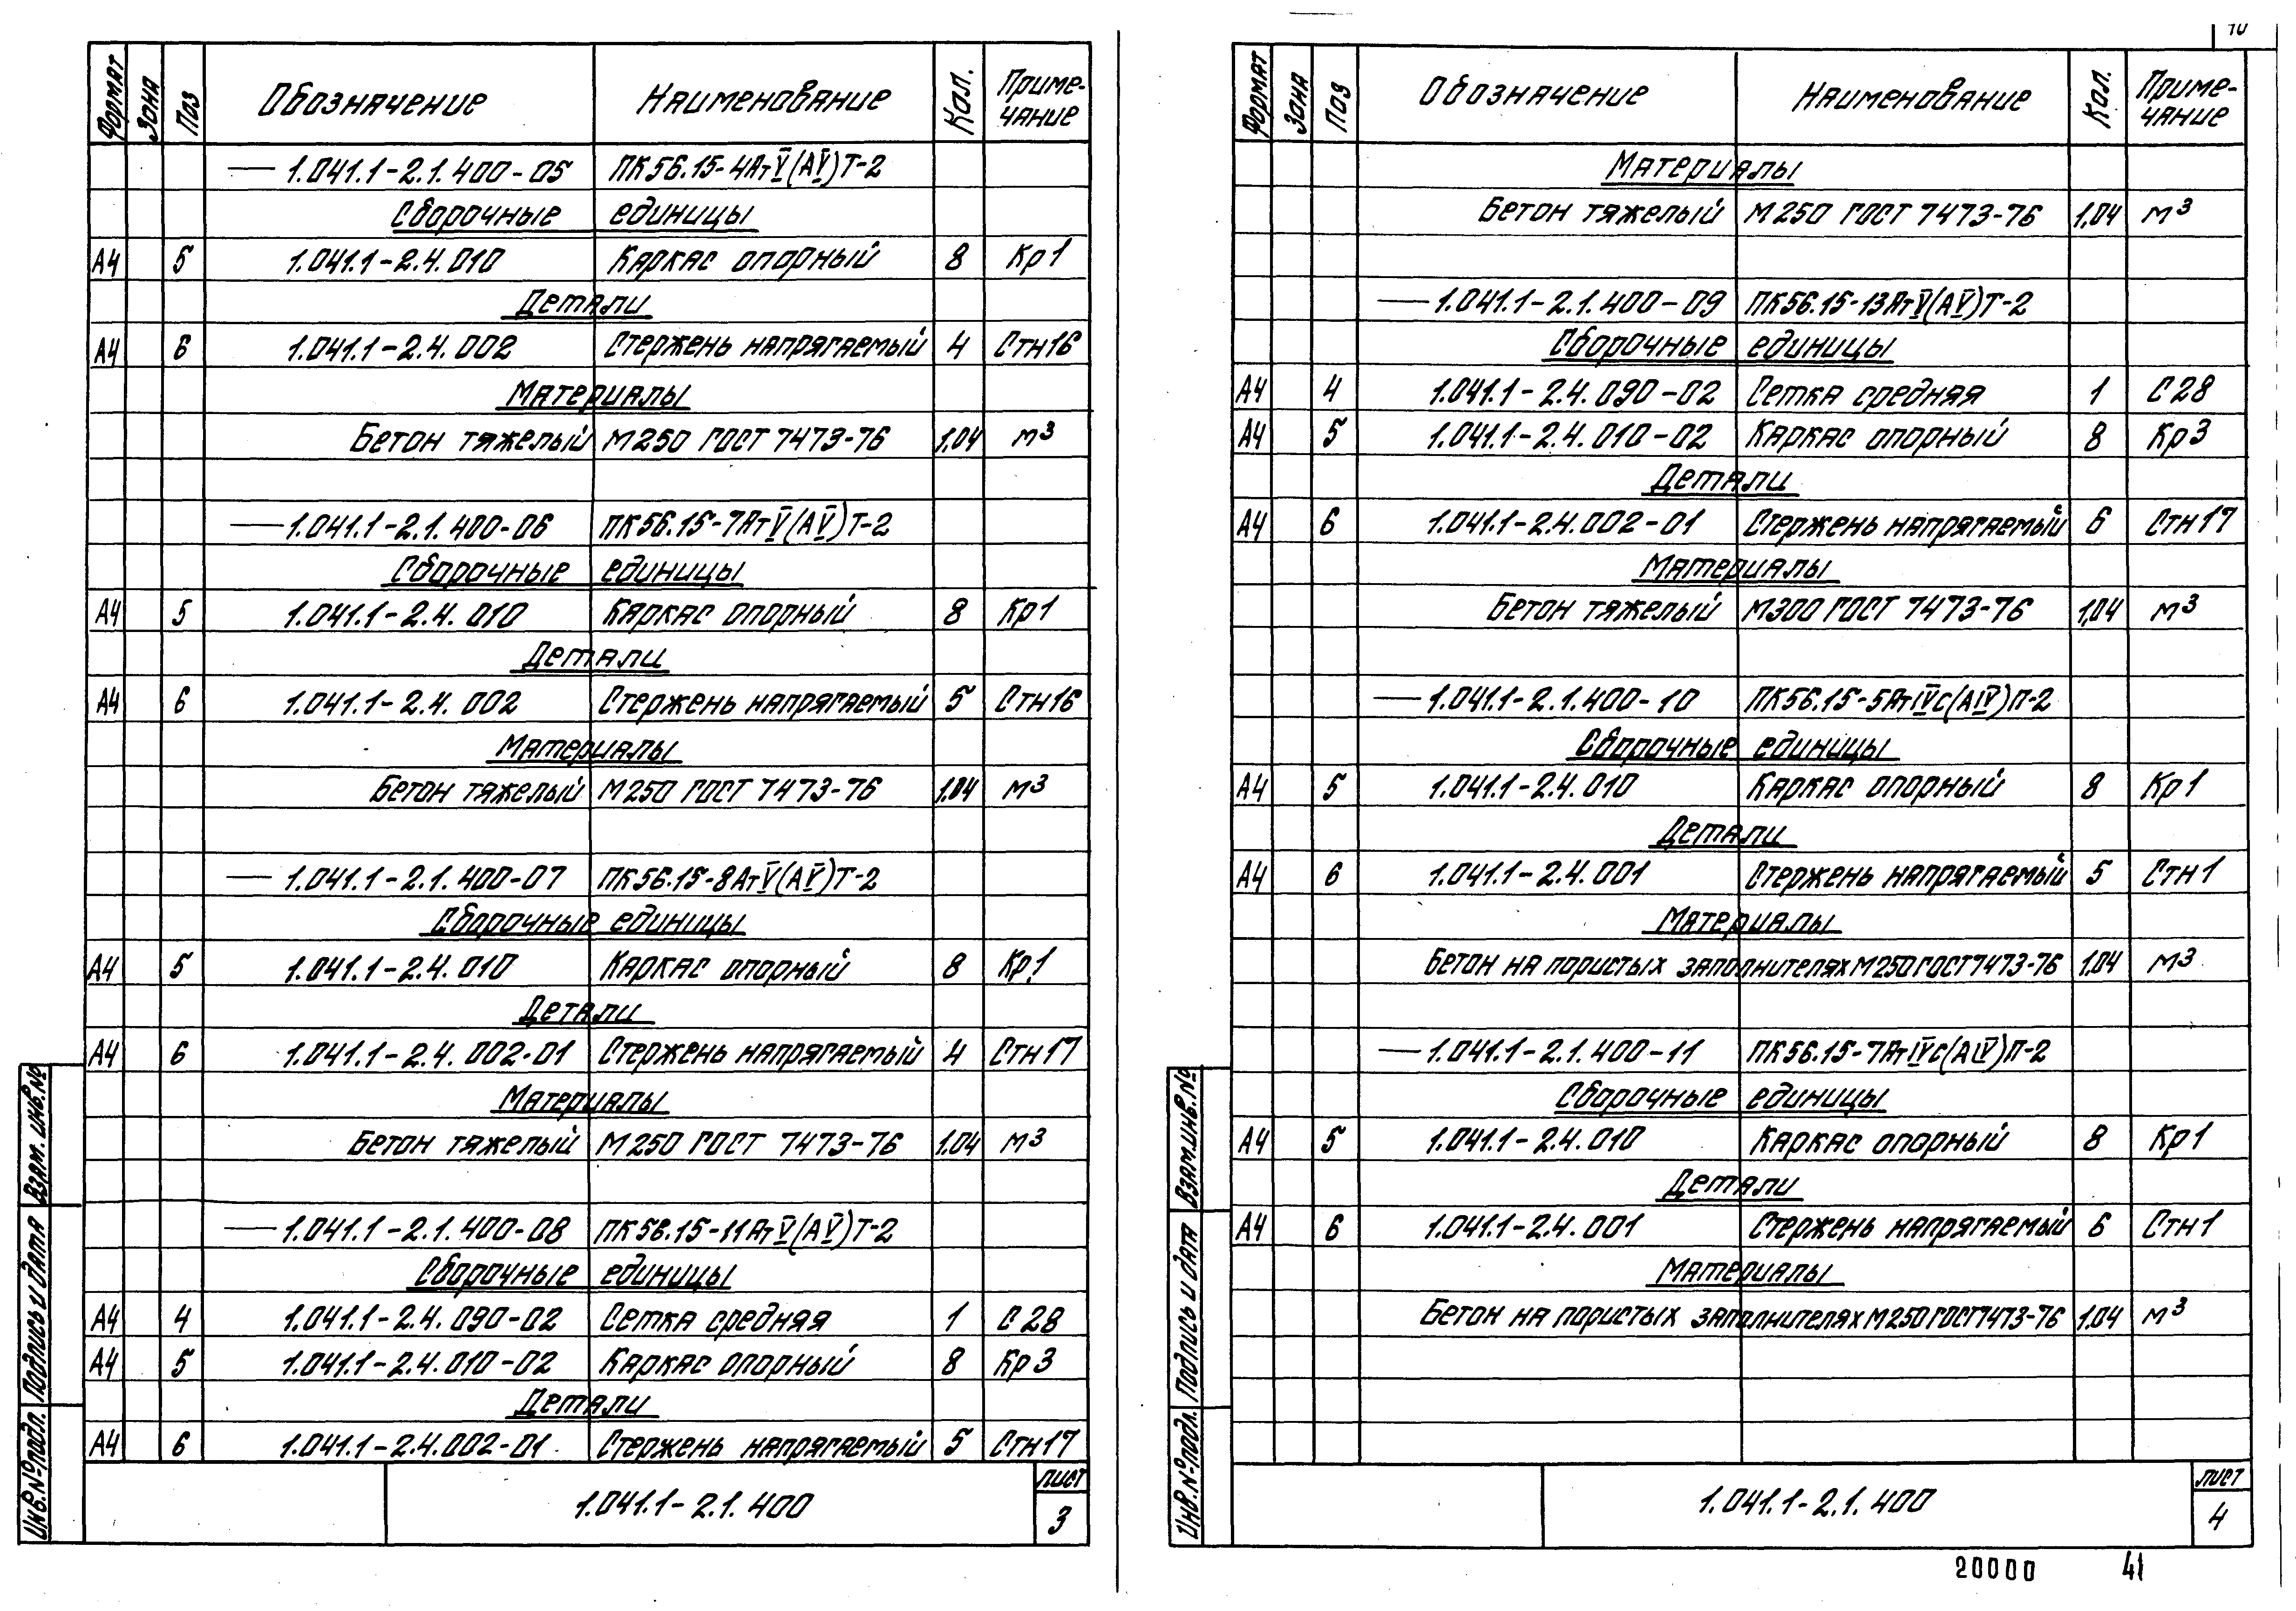 Формат Зона Поз Обозначение Наименование Кол. Приме-
чание
— 1.041.1-2.1.400-05 ПК56.15-4АтV(АV)Т-2
Сборочные единицы
А4 5 1.041.1-2.4.010 Каркас опорный 8 Кр1
Детали
А4 6 1.041.1-2.4.002 Стержень напрягаемый 4 Стн16
Материалы
Бетон тяжелый М250 ГОСТ 7473-76 1.04 м³
— 1.041.1-2.1.400-06 ПК56.15-7АтV(АV)Т-2
Сборочные единицы
А4 5 1.041.1-2.4.010 Каркас опорный 8 Кр1
Детали
А4 6 1.041.1-2.4.002 Стержень напрягаемый 5 Стн16
Материалы
Бетон тяжелый М250 ГОСТ 7473-76 1.04 м³
— 1.041.1-2.1.400-07 ПК56.15-8АтV(АV)Т-2
Сборочные единицы
А4 5 1.041.1-2.4.010 Каркас опорный 8 Кр1
Детали
А4 6 1.041.1-2.4.002-01 Стержень напрягаемый 4 Стн17
Материалы
Бетон тяжелый М250 ГОСТ 7473-76 1.04 м³
— 1.041.1-2.1.400-08 ПК56.15-11АтV(АV)Т-2
Сборочные единицы
А4 4 1.041.1-2.4.090-02 Сетка средняя 1 С28
А4 5 1.041.1-2.4.010-02 Каркас опорный 8 Кр3
Детали
А4 6 1.041.1-2.4.002-01 Стержень напрягаемый 5 Стн17
Инв.№подл. Подпись и дата Взам.инв.№
1.041.1-2.1.400
лист
3
Формат Зона Поз Обозначение Наименование Кол. Приме-
чание
Материалы
Бетон тяжелый М250 ГОСТ 7473-76 1,04 м³
— 1.041.1-2.1.400-09 ПК56.15-13АтV(АV)Т-2
Сборочные единицы
А4 4 1.041.1-2.4.090-02 Сетка средняя 1 С28
А4 5 1.041.1-2.4.010-02 Каркас опорный 8 Кр3
Детали
А4 6 1.041.1-2.4.002-01 Стержень напрягаемый 6 Стн17
Материалы
Бетон тяжелый М300 ГОСТ 7473-76 1,04 м³
— 1.041.1-2.1.400-10 ПК56.15-5АтIVС(АIV)П-2
Сборочные единицы
А4 5 1.041.1-2.4.010 Каркас опорный 8 Кр1
Детали
А4 6 1.041.1-2.4.001 Стержень напрягаемый 5 Стн1
Материалы
Бетон на пористых заполнителях М250 ГОСТ7473-76 1,04 м³
— 1.041.1-2.1.400-11 ПК56.15-7АтIVС(АIV)П-2
Сборочные единицы
А4 5 1.041.1-2.4.010 Каркас опорный 8 Кр1
Детали
А4 6 1.041.1-2.4.001 Стержень напрягаемый 6 Стн1
Материалы
Бетон на пористых заполнителях М250 ГОСТ7473-76 1,04 м³
Инв.№подл. Подпись и дата Взам.инв.№
1.041.1-2.1.400
лист
4
20000 41